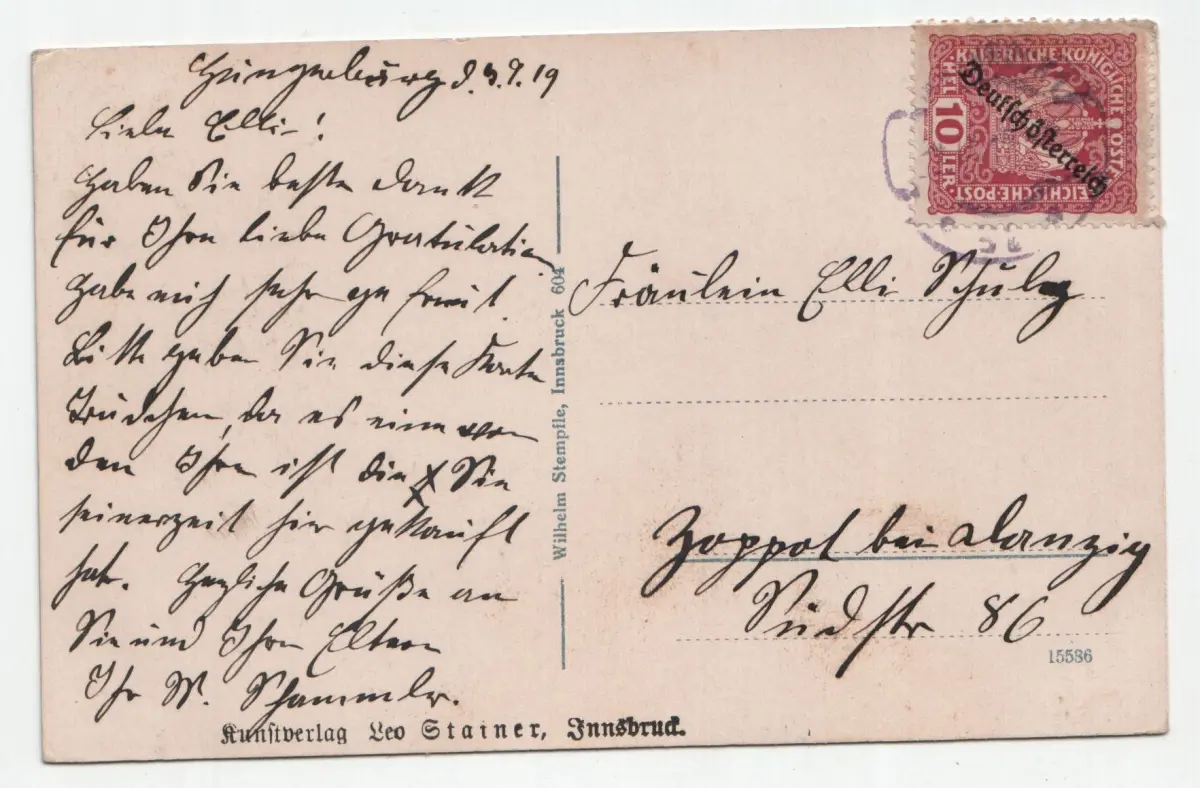 Hungerburg d. 3.9.19
Liebe Elli!
Haben Sie besten Dank
für Ihre liebe Gratulation
habe mich sehr gefreut.
Bitte geben Sie diese Karte
Trudchen, da es eine von
den Ihren ist die Sie
seinerzeit hier gekauft
hat. Herzliche Grüße an
Sie und Ihre Eltern
Ihr W. Schammler.
Kunstverlag Leo Stainer, Innsbruck.
Wilhelm Stempfle, Innsbruck 604
KAISERLICHE KÖNIGLICHE
ÖSTERREICHISCHE POST
10
HELLER
Deutschösterreich
Fräulein Elli Schulz
Zoppot bei Danzig
Südstr 86
15586